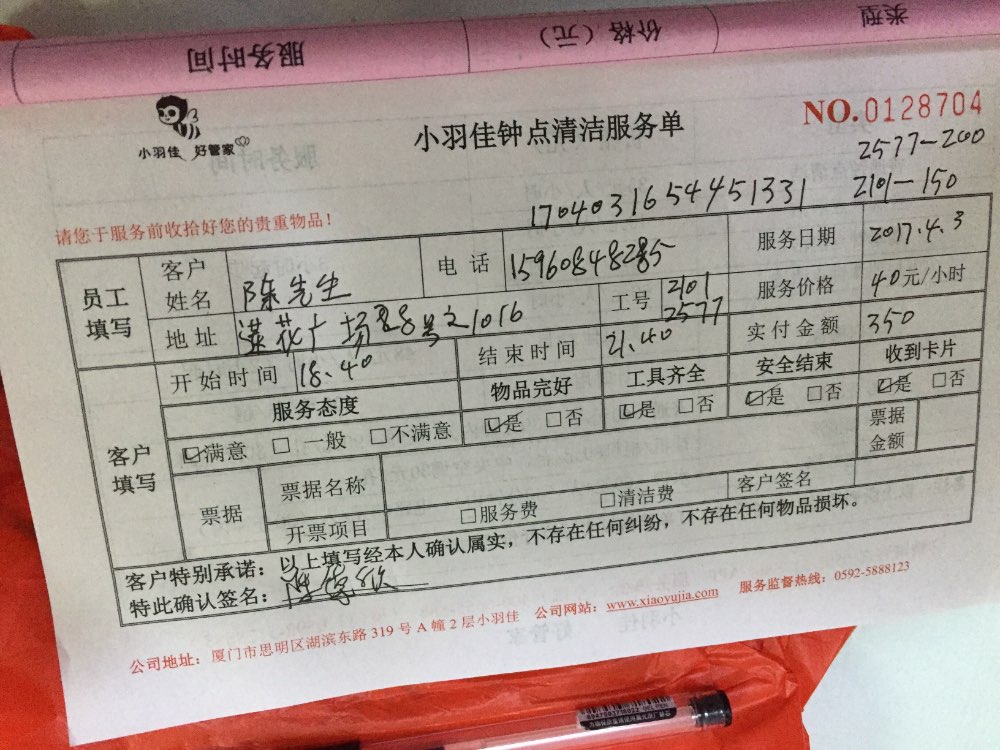 服务时间
价格（元）
类型
小羽佳 好管家
小羽佳钟点清洁服务单
NO.0128704
2577-200
17040316544451331 2101-150
请您于服务前收拾好您的贵重物品！
员工填写 客户姓名 陈先生 电话 15960848285 服务日期 2017.4.3
地址 莲花广场 号之1016 工号 2101 2577 服务价格 40元/小时
客户填写 开始时间 18.40 结束时间 21.40 实付金额 350
服务态度 物品完好 工具齐全 安全结束 收到卡片
☑满意 □一般 □不满意 ☑是 □否 ☑是 □否 ☑是 □否 ☑是 □否
票据 票据名称 票据金额
开票项目 □服务费 □清洁费 客户签名
客户特别承诺：以上填写经本人确认属实，不存在任何纠纷，不存在任何物品损坏。
特此确认签名：
公司地址：厦门市思明区湖滨东路319号A幢2层小羽佳 公司网站：www.xiaoyujia.com 服务监督热线：0592-5888123